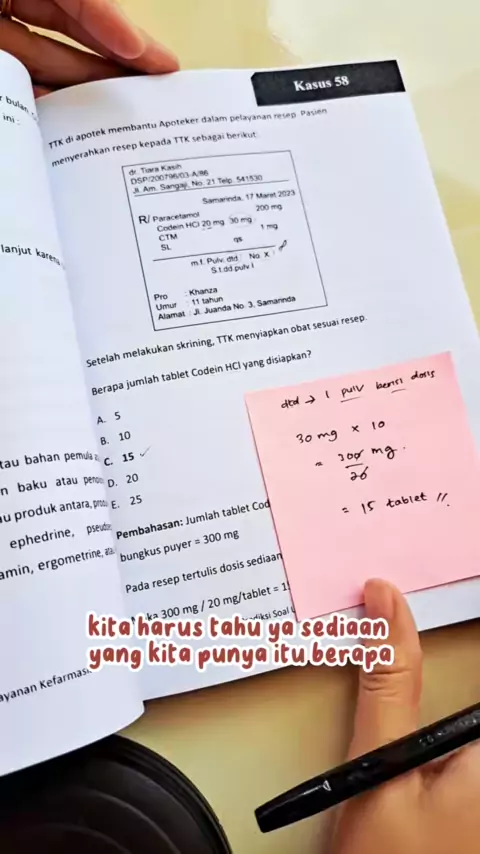 Kasus 58
TTK di apotek membantu Apoteker dalam pelayanan resep. Pasien
menyerahkan resep kepada TTK sebagai berikut:
dr. Tiara Kasih
DSP/200796/03-A/86
Jl. Am. Sangaji, No. 21 Telp. 541530
Samarinda, 17 Maret 2023
R/ Paracetamol 200 mg
Codein HCl 20 mg 30 mg
CTM 1 mg
SL qs
m.f. Pulv. dtd. No. X
S.t.dd.pulv I
Pro : Khanza
Umur : 11 tahun
Alamat : Jl. Juanda No. 3, Samarinda
Setelah melakukan skrining, TTK menyiapkan obat sesuai resep.
Berapa jumlah tablet Codein HCl yang disiapkan?
A. 5
B. 10
C. 15 ✓
D. 20
E. 25
Pembahasan: Jumlah tablet Cod
bungkus puyer = 300 mg
Pada resep tertulis dosis sediaan
300 mg / 20 mg/tablet = 1
dtd → 1 pulv berisi dosis
30 mg x 10
= 300 mg.
20
= 15 tablet //.
r bulan
ini :
lanjut karena
tau bahan pemula
n baku atau
u produk antara,
ephedrine,
amin, ergometrine,
ayanan Kefarmas
kita harus tahu ya sediaan
yang kita punya itu berapa